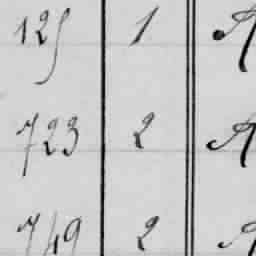 125 1 A
723 2 A
749 2 A